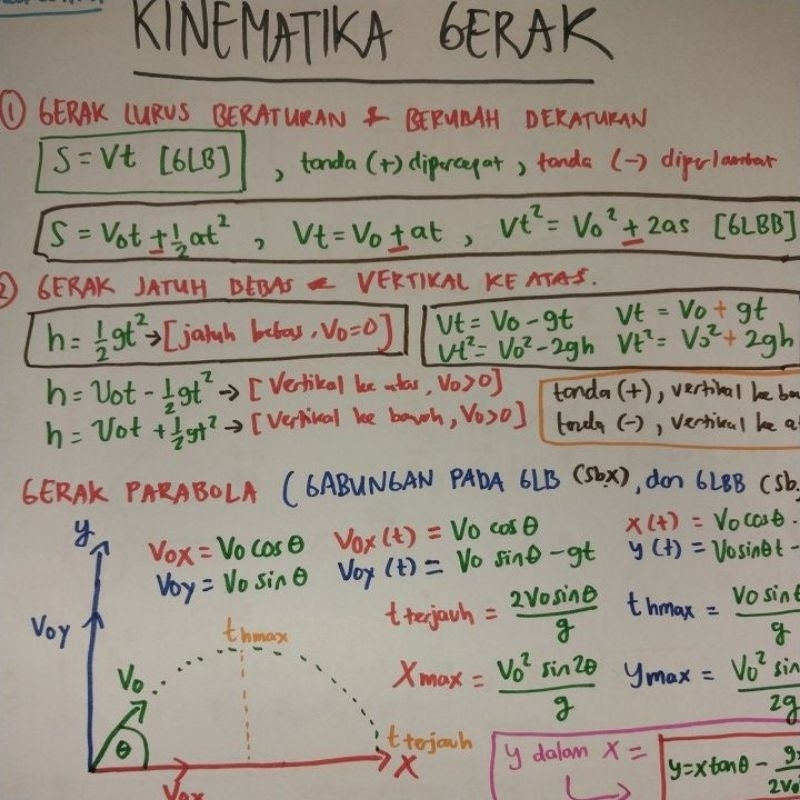 KINEMATIKA GERAK
① GERAK LURUS BERATURAN & BERUBAH BERATURAN
S = Vt [GLB] , tanda (+) dipercepat , tanda (-) diperlambat
S = Vot ± ½at² , Vt = Vo ± at , Vt² = Vo² ± 2as [GLBB]
② GERAK JATUH BEBAS & VERTIKAL KE ATAS.
h = ½gt² → [jatuh bebas, Vo=0]
Vt = Vo - gt Vt = Vo + gt
Vt² = Vo² - 2gh Vt² = Vo² + 2gh
h = Vot - ½gt² → [Vertikal ke atas, Vo>0]
h = Vot + ½gt² → [Vertikal ke bawah, Vo>0]
tanda (+), vertikal ke ba
tanda (-), vertikal ke a
GERAK PARABOLA (GABUNGAN PADA GLB (sb.x), dan GLBB (sb.
Vox = Vo cos θ Vox (t) = Vo cos θ x (t) = Vo cos θ ·
Voy = Vo sin θ Voy (t) = Vo sin θ - gt y (t) = Vo sin θ t -
t terjauh = 2Vo sin θ / g t hmax = Vo sin θ / g
Xmax = Vo² sin 2θ / g Ymax = Vo² sin / 2g
y
Voy
Vo
θ
t hmax
t terjauh
X
Vox
y dalam x =
y = x tan θ - g / 2Vo